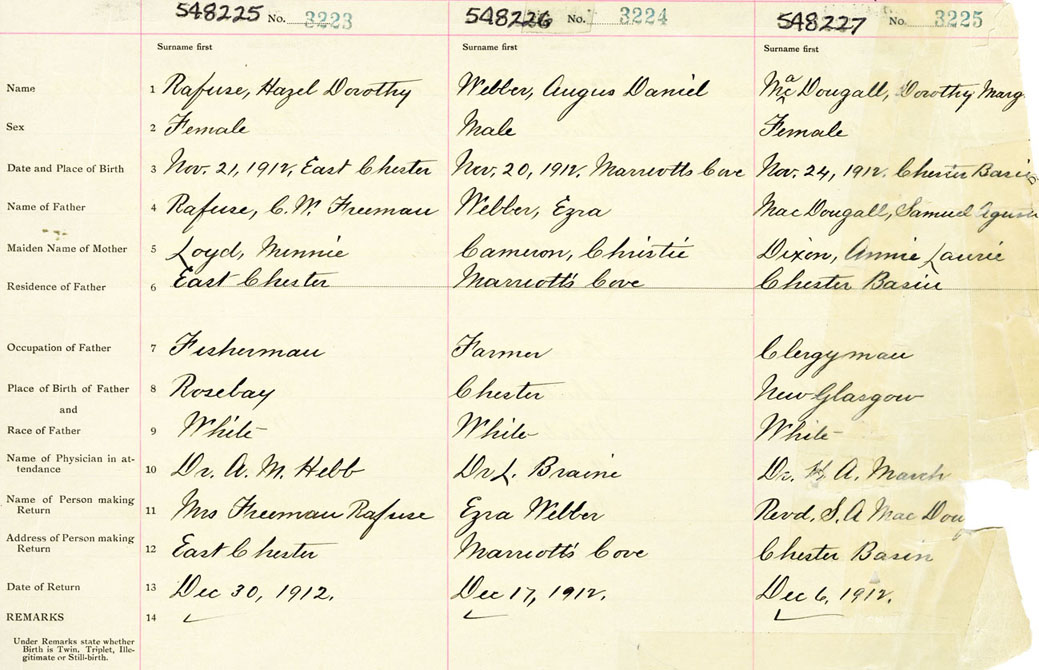 548225 No. 3223 548226 No. 3224 548227 No. 3225
Surname first Surname first Surname first
Name 1 Rafuse, Hazel Dorothy Webber, Augus Daniel Mac Dougall, Dorothy Marg
Sex 2 Female Male Female
Date and Place of Birth 3 Nov. 21, 1912, East Chester Nov. 20, 1912. Marriotts Cove Nov. 24, 1912. Chester Basin
Name of Father 4 Rafuse, C. W. Freeman Webber, Ezra Mac Dougall, Samuel
Maiden Name of Mother 5 Loyd, Minnie Cameron, Christie Dixon, Annie Laurie
Residence of Father 6 East Chester Marriott's Cove Chester Basin
Occupation of Father 7 Fisherman Farmer Clergyman
Place of Birth of Father 8 Rosebay Chester New Glasgow
and
Race of Father 9 White White White
Name of Physician in at-
tendance 10 Dr. A. M. Hebb Dr L. Braine Dr. A. March
Name of Person making
Return 11 Mrs Freeman Rafuse Ezra Webber Revd, S. A Mac Dou
Address of Person making
Return 12 East Chester Marriott's Cove Chester Basin
Date of Return 13 Dec 30, 1912. Dec 17, 1912. Dec 6, 1912.
REMARKS 14
Under Remarks state whether
Birth is Twin, Triplet, Ille-
gitimate or Still-birth.